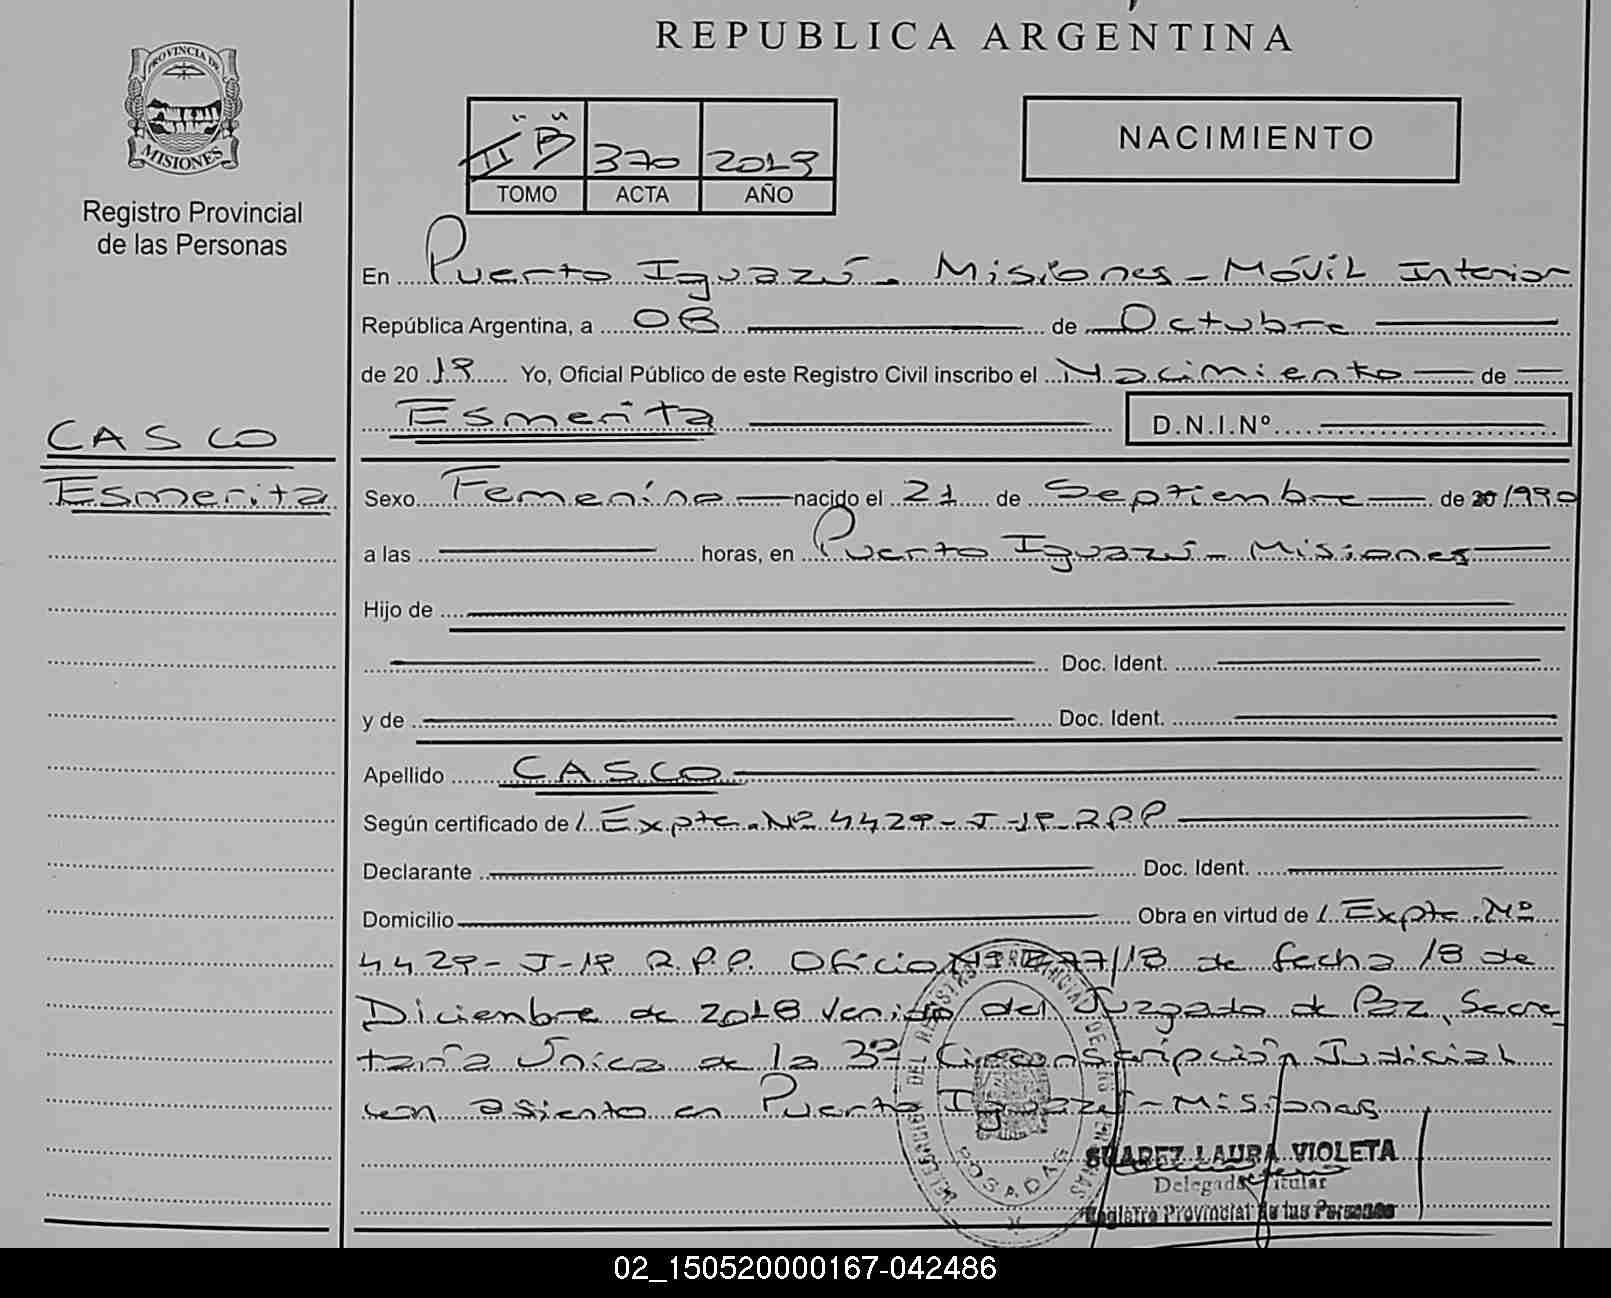 REPUBLICA ARGENTINA
PROVINCIA DE
MISIONES
Registro Provincial
de las Personas
"II" "B" 370 2019
TOMO ACTA AÑO
NACIMIENTO
En Puerto Iguazú - Misiones - Móvil Interior
República Argentina, a 08 de Octubre
de 20 19 Yo, Oficial Público de este Registro Civil inscribo el Nacimiento de
Esmerita D.N.I.Nº
CASCO
Esmerita
Sexo Femenino nacido el 21 de Septiembre de 1990
a las horas, en Puerto Iguazú - Misiones
Hijo de
Doc. Ident.
y de Doc. Ident.
Apellido CASCO
Según certificado de / Expte. Nº 4429-J-19 R.P.P
Declarante Doc. Ident.
Domicilio Obra en virtud de / Expte. Nº
4429-J-19 R.P.P. Oficio /18 de fecha 18 de
Diciembre de 2018 Venido del Juzgado de Paz, Secre-
taría Única de la 3ª Circunscripción Judicial
con asiento en Puerto Iguazú - Misiones
SUAREZ LAURA VIOLETA
Delegada Titular
Registro Provincial de las Personas
POSADAS
02_150520000167-042486